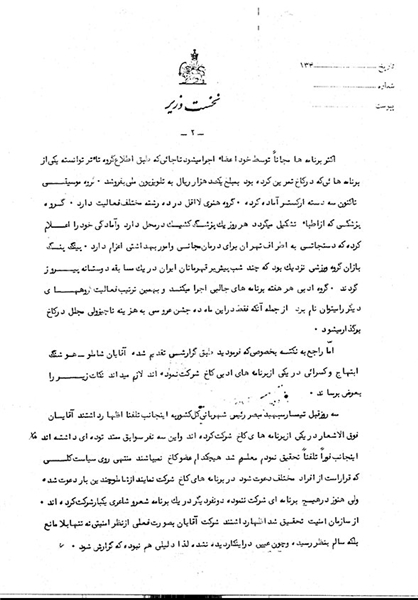 تاریخ ۱۳۴
شماره
پیوست
نخست وزیر
ـ ۲ ـ
اکثر برنامه ها مجاناً توسط خود اعضاء اجرا میشود تا جائی که طبق اطلاع گروه تاتر توانسته یکی از
برنامه هائی که در کاخ تمرین کرده بود بمبلغ یکصد هزار ریال به تلویزیون ملی بفروشد . گروه موسیقی
تاکنون سه دسته ارکستر آماده کرده . گروه هنری لااقل در ده رشته مختلف فعالیت دارد . گروه
پزشکی که از اطباء تشکیل میگردد هر روز یک پزشک کشیک در محل دارد و آمادگی خود را اعلام
کرده که دستجاتی به اطراف تهران برای درمان مجانی و امور بهداشتی اعزام دارد . پینگ پنگ
بازان گروه ورزشی نزدیک بود که چند شب پیش بر قهرمانان ایران در یک مسابقه دوستانه پیروز
گردند . گروه ادبی هر هفته برنامه های جالبی اجرا میکند و بهمین ترتیب فعالیت گروههای
دیگر را میتوان نام برد . از جمله آنکه فقط در این ماه ده جشن عروسی به هزینه ناچیز ولی مجلل در کاخ
برگذار میشود .
اما راجع به نکته بخصوصی که فرمودید طبق گزارشی تقدیم شده آقایان شاملو ـ هوشنگ
ابتهاج و کسرائی در یکی از برنامه های ادبی کاخ شرکت نموده اند لازم میداند نکات زیر را
بعرض برساند .
سه روز قبل تیمسار سپهبد مبصر رئیس شهربانی کل کشور به اینجانب تلفناً اظهار داشتند آقایان
فوق الاشعار در یکی از برنامه های کاخ شرکت کرده اند و این سه نفر سوابق ممتد توده ای داشته اند
اینجانب فوراً تلفناً تحقیق نمودم معلوم شد هیچکدام عضو کاخ نمیباشند منتهی روی سیاست کلی
که قرار است از افراد مختلف دعوت شود در برنامه های کاخ شرکت نمایند از شاملو چندین بار دعوت شده
ولی هنوز در هیچ برنامه ای شرکت ننموده و دو نفر دیگر در یک برنامه شعر و شاعری یکبار شرکت کرده اند .
از سازمان امنیت تحقیق شد اظهار داشتند شرکت آقایان بصورت فعلی از نظر امنیتی نه تنها بلا مانع
بلکه سالم بنظر رسیده و چون عیبی در اینکار دیده نشده لذا دلیلی هم نبوده که گزارش شود .